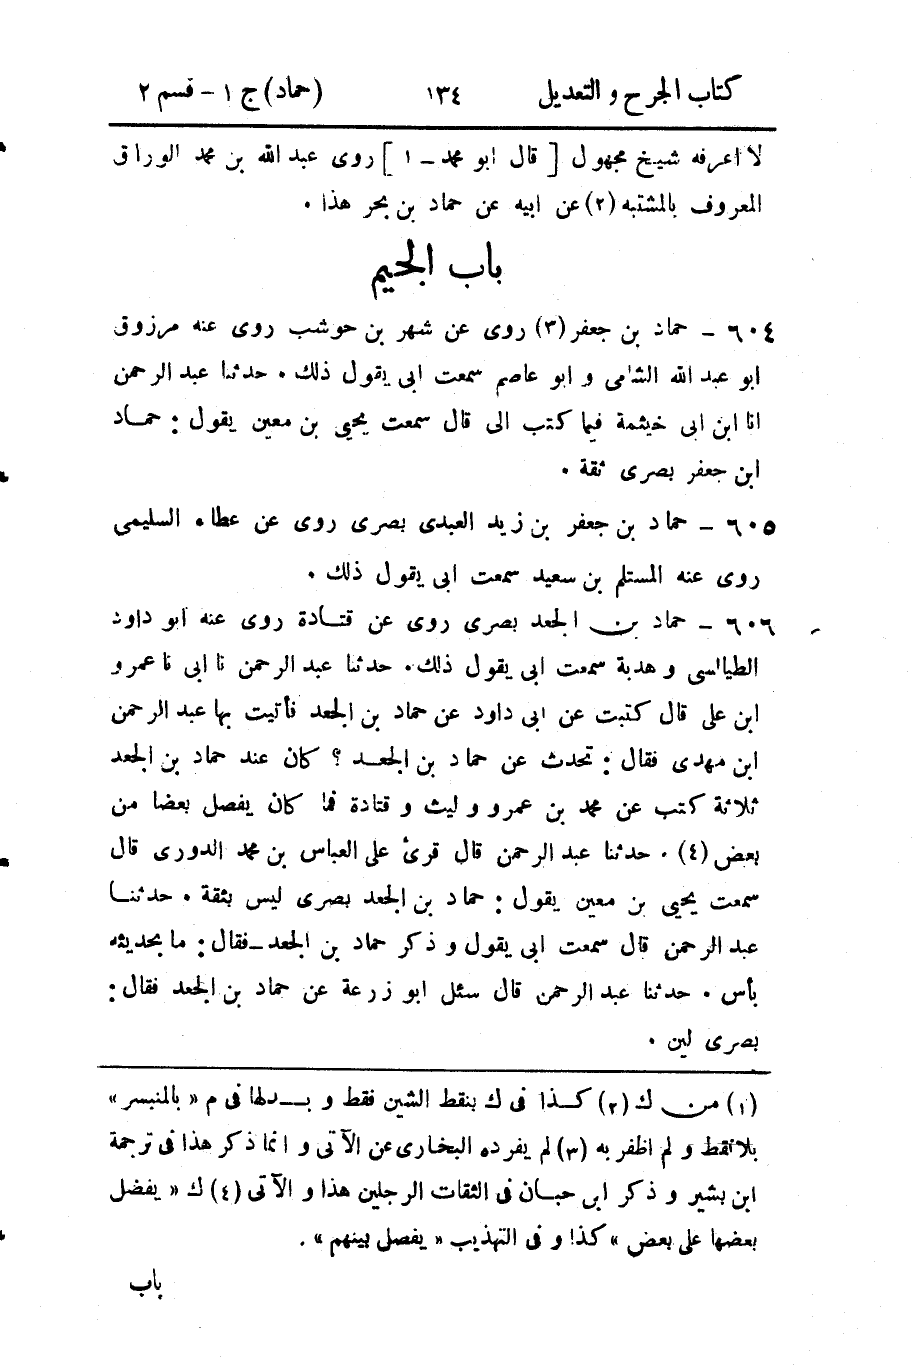 كتاب الجرح و التعديل ١٣٤ (حماد) ج ١ - قسم ٢
لا اعرفه شيخ مجهول [ قال ابو محمد - ١ ] روى عبد الله بن محمد الوراق
المعروف بالمشتبه (٢) عن ابيه عن حماد بن بحر هذا .
باب الجيم
٦٠٤ - حماد بن جعفر (٣) روى عن شهر بن حوشب روى عنه مرزوق
ابو عبد الله الشامى و ابو عاصم سمعت ابى يقول ذلك . حدثنا عبد الرحمن
انا ابن ابى خيثمة فيما كتب الى قال سمعت يحيى بن معين يقول : حماد
ابن جعفر بصرى ثقة .
٦٠٥ - حماد بن جعفر بن زيد العبدى بصرى روى عن عطاء السليمى
روى عنه المستلم بن سعيد سمعت ابى يقول ذلك .
٦٠٦ - حماد بن الجعد بصرى روى عن قتادة روى عنه ابو داود
الطيالسى و هدبة سمعت ابى يقول ذلك . حدثنا عبد الرحمن نا ابى نا عمرو
ابن على قال كتبت عن ابى داود عن حماد بن الجعد فأتيت بها عبد الرحمن
ابن مهدى فقال : تحدث عن حماد بن الجعد ؟ كان عند حماد بن الجعد
ثلاثة كتب عن محمد بن عمرو و ليث و قتادة فما كان يفصل بعضا من
بعض (٤) . حدثنا عبد الرحمن قال قرئ على العباس بن محمد الدورى قال
سمعت يحيى بن معين يقول : حماد بن الجعد بصرى ليس بثقة . حدثنا
عبد الرحمن قال سمعت ابى يقول و ذكر حماد بن الجعد - فقال : ما بحديثه
بأس . حدثنا عبد الرحمن قال سئل ابو زرعة عن حماد بن الجعد فقال :
بصرى لين .
(١) من ك (٢) كذا فى ك بنقط الشين فقط و بدلها فى م « بالمنبسر »
بلا نقط و لم اظفر به (٣) لم يفرده البخارى عن الآتى و انما ذكر هذا فى ترجمة
ابن بشير و ذكر ابن حبان فى الثقات الرجلين هذا و الآتى (٤) ك « يفضل
بعضها على بعض » كذا و فى التهذيب « يفصل بينهم » .
باب